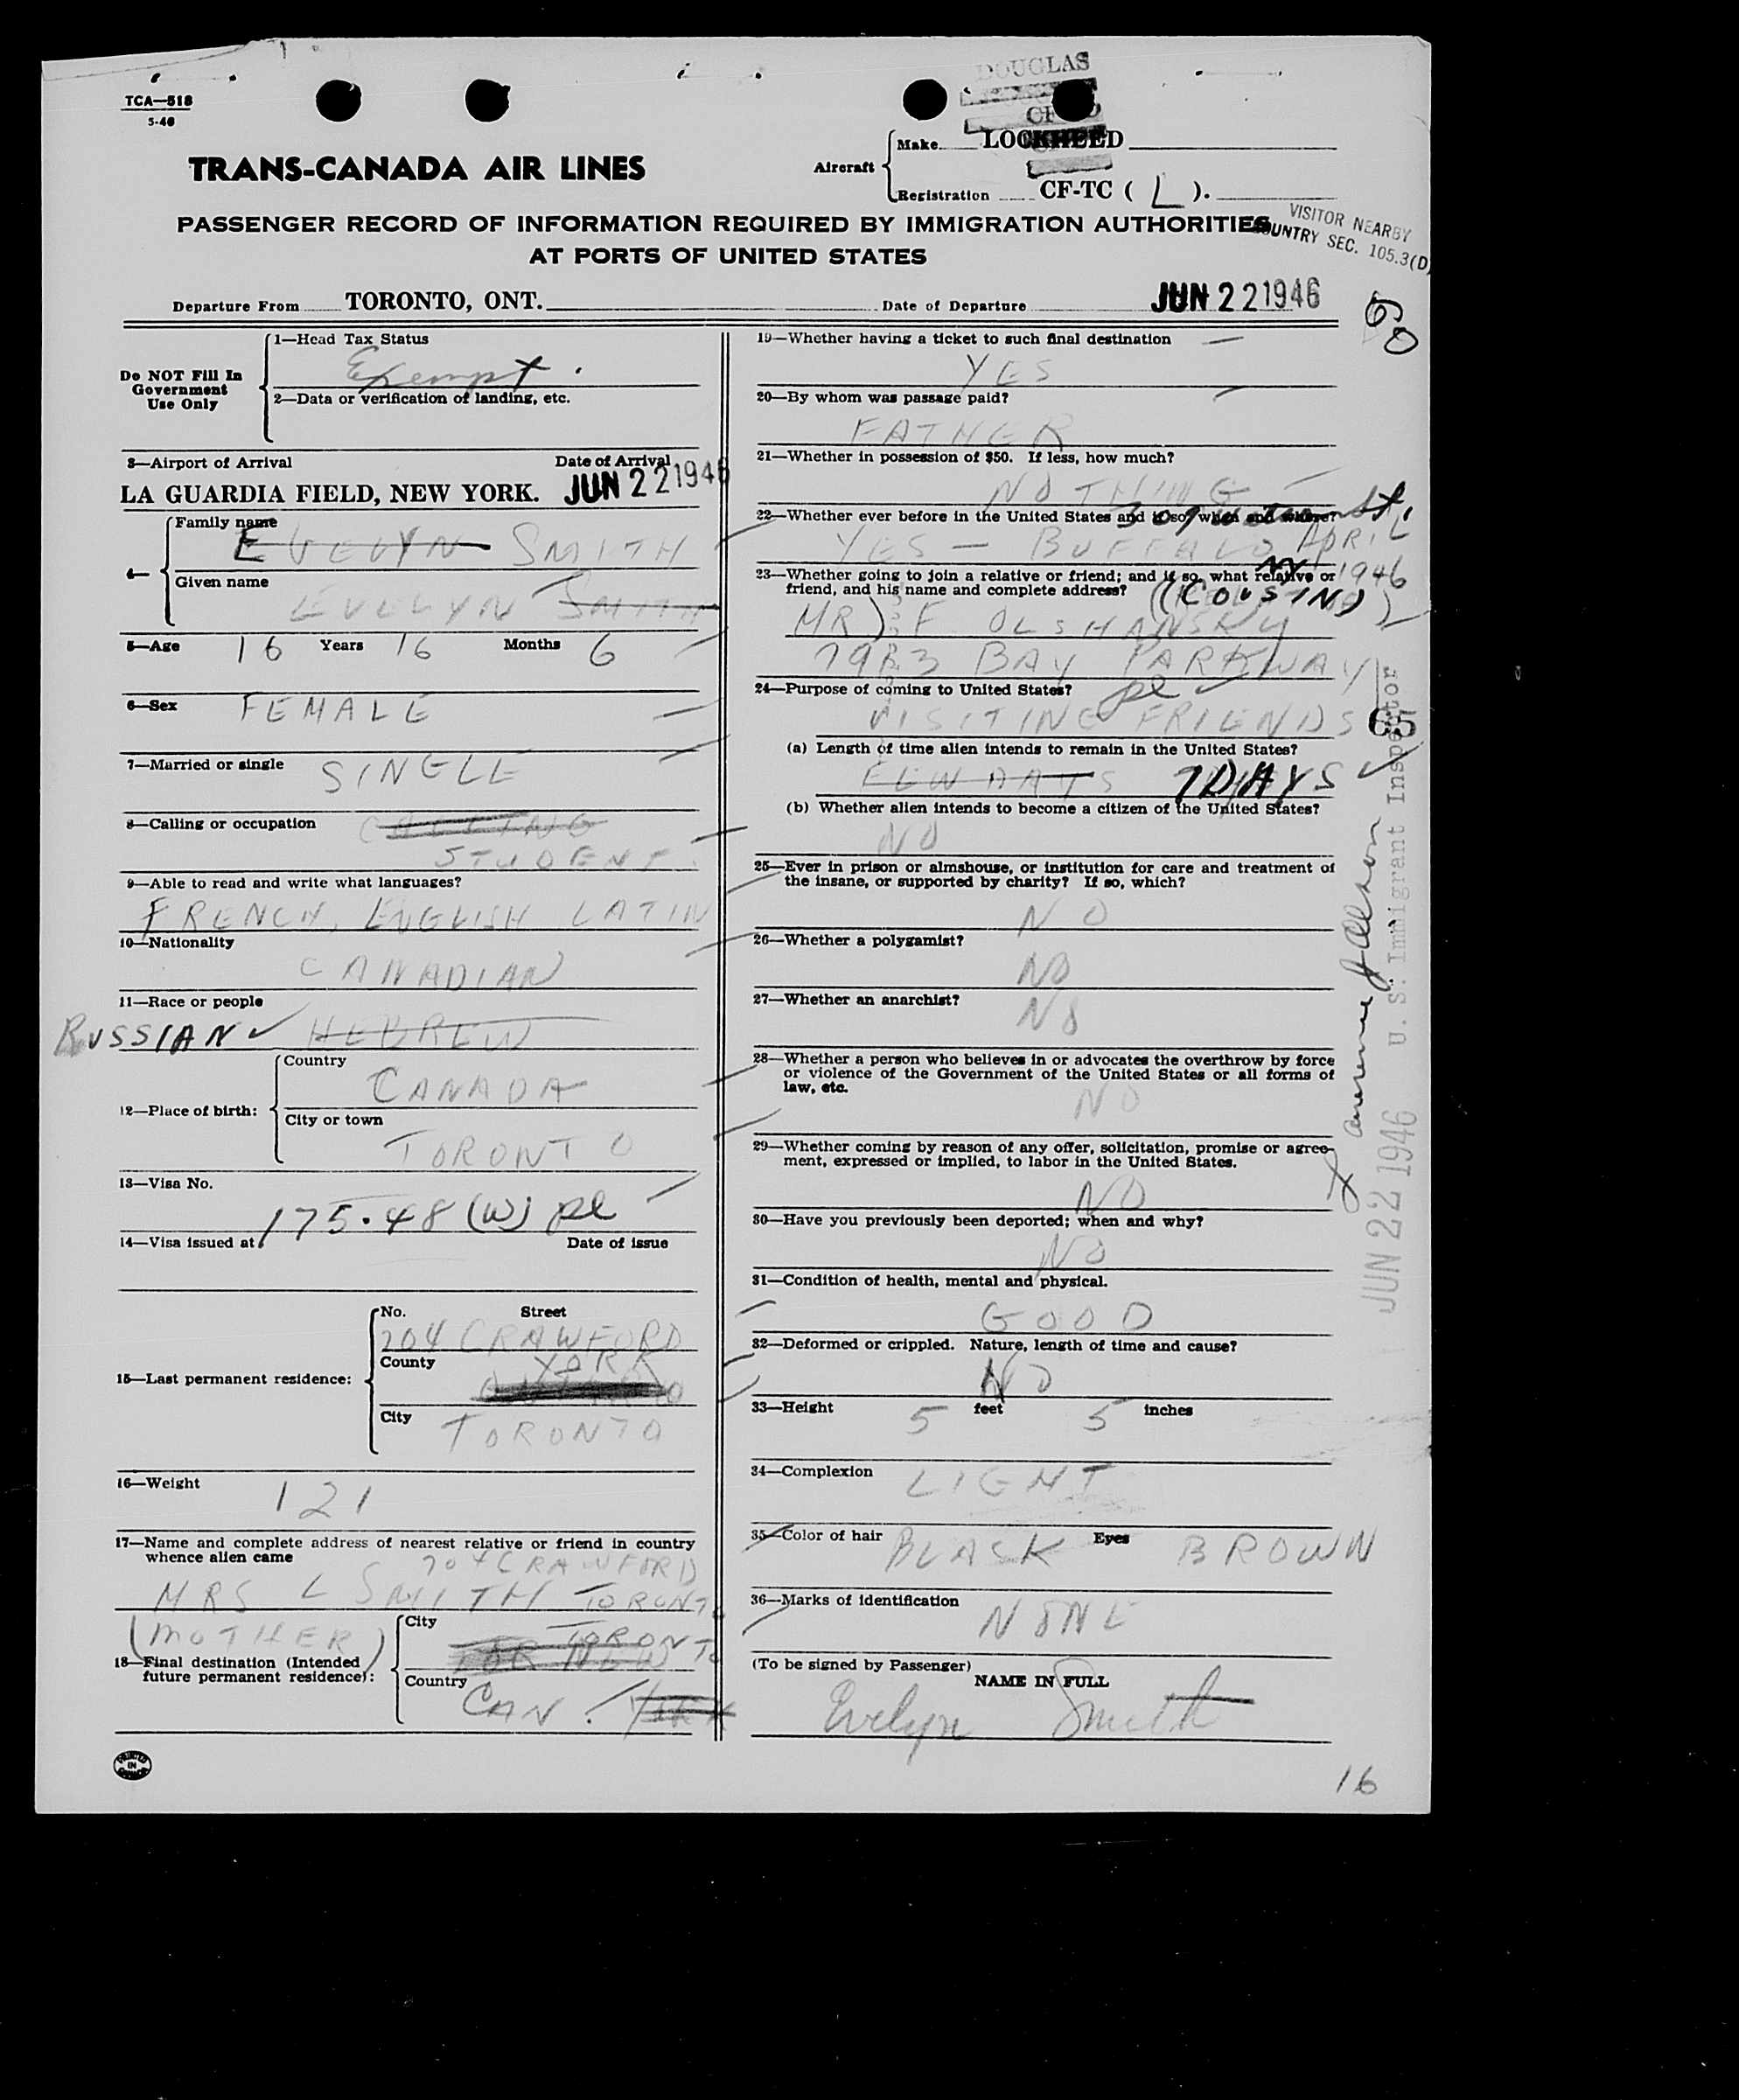 TCA—518
5-46
DOUGLAS
TRANS-CANADA AIR LINES
Aircraft
Make LOCKHEED
Registration CF-TC ( L ).
PASSENGER RECORD OF INFORMATION REQUIRED BY IMMIGRATION AUTHORITIES
AT PORTS OF UNITED STATES
VISITOR NEARBY
COUNTRY SEC. 105.3(D)
Departure From TORONTO, ONT. Date of Departure JUN 22 1946
60
Do NOT Fill In
Government
Use Only
1—Head Tax Status
Exempt.
2—Data or verification of landing, etc.
3—Airport of Arrival Date of Arrival
LA GUARDIA FIELD, NEW YORK. JUN 22 1946
4—
Family name
EVELYN SMITH
Given name
EVELYN SMITH
5—Age 16 Years 16 Months 6
6—Sex FEMALE
7—Married or single SINGLE
8—Calling or occupation
STUDENT
9—Able to read and write what languages?
FRENCH, ENGLISH LATIN
10—Nationality
CANADIAN
11—Race or people
RUSSIAN ✓ HEBREW
12—Place of birth:
Country
CANADA
City or town
TORONTO
13—Visa No.
175.48 (W) pl
14—Visa issued at Date of issue
15—Last permanent residence:
No. Street
204 CRAWFORD
County YORK
City TORONTO
16—Weight
121
17—Name and complete address of nearest relative or friend in country
whence alien came
204 CRAWFORD
MRS L SMITH TORONTO
(MOTHER)
18—Final destination (Intended
future permanent residence):
City
TORONTO
Country
CAN. YORK
PRINTED
IN
CANADA
19—Whether having a ticket to such final destination
YES
20—By whom was passage paid?
FATHER
21—Whether in possession of $50. If less, how much?
NOTHING
22—Whether ever before in the United States and if so, when and where?
YES — BUFFALO APRIL
NY 1946
23—Whether going to join a relative or friend; and if so, what relative or
friend, and his name and complete address?
(COUSIN)
MR F OLSHANSKY
7983 BAY PARKWAY
24—Purpose of coming to United States? pl
VISITING FRIENDS
65
(a) Length of time alien intends to remain in the United States?
FEW DAYS 7 DAYS ✓
(b) Whether alien intends to become a citizen of the United States?
NO
25—Ever in prison or almshouse, or institution for care and treatment of
the insane, or supported by charity? If so, which?
NO
26—Whether a polygamist?
NO
27—Whether an anarchist?
NO
28—Whether a person who believes in or advocates the overthrow by force
or violence of the Government of the United States or all forms of
law, etc.
NO
29—Whether coming by reason of any offer, solicitation, promise or agree-
ment, expressed or implied, to labor in the United States.
NO
30—Have you previously been deported; when and why?
NO
31—Condition of health, mental and physical.
GOOD
32—Deformed or crippled. Nature, length of time and cause?
NO
33—Height 5 feet 5 inches
34—Complexion LIGHT
35—Color of hair BLACK Eyes BROWN
36—Marks of identification
NONE
(To be signed by Passenger)
NAME IN FULL
Evelyn Smith
U. S. Immigrant Inspector
JUN 22 1946
16